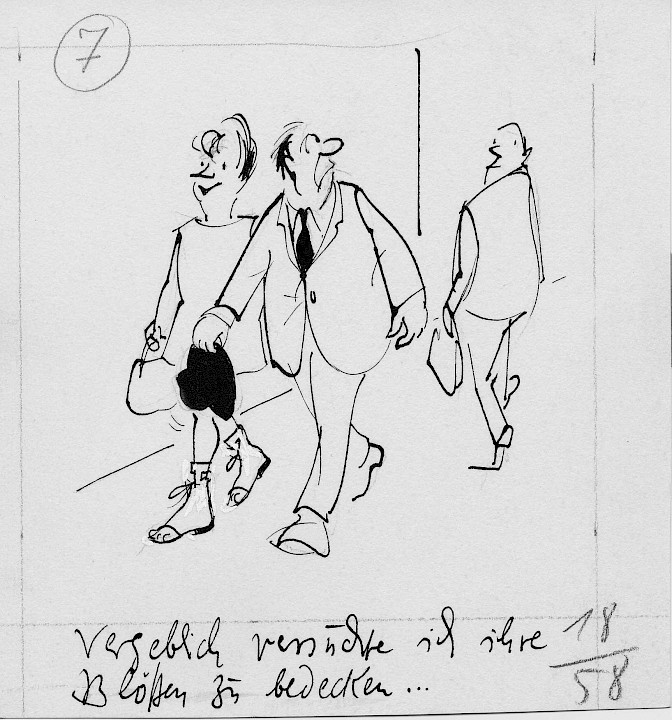 7
Vergeblich versuchte ich ihre
Blößen zu bedecken...
18
58